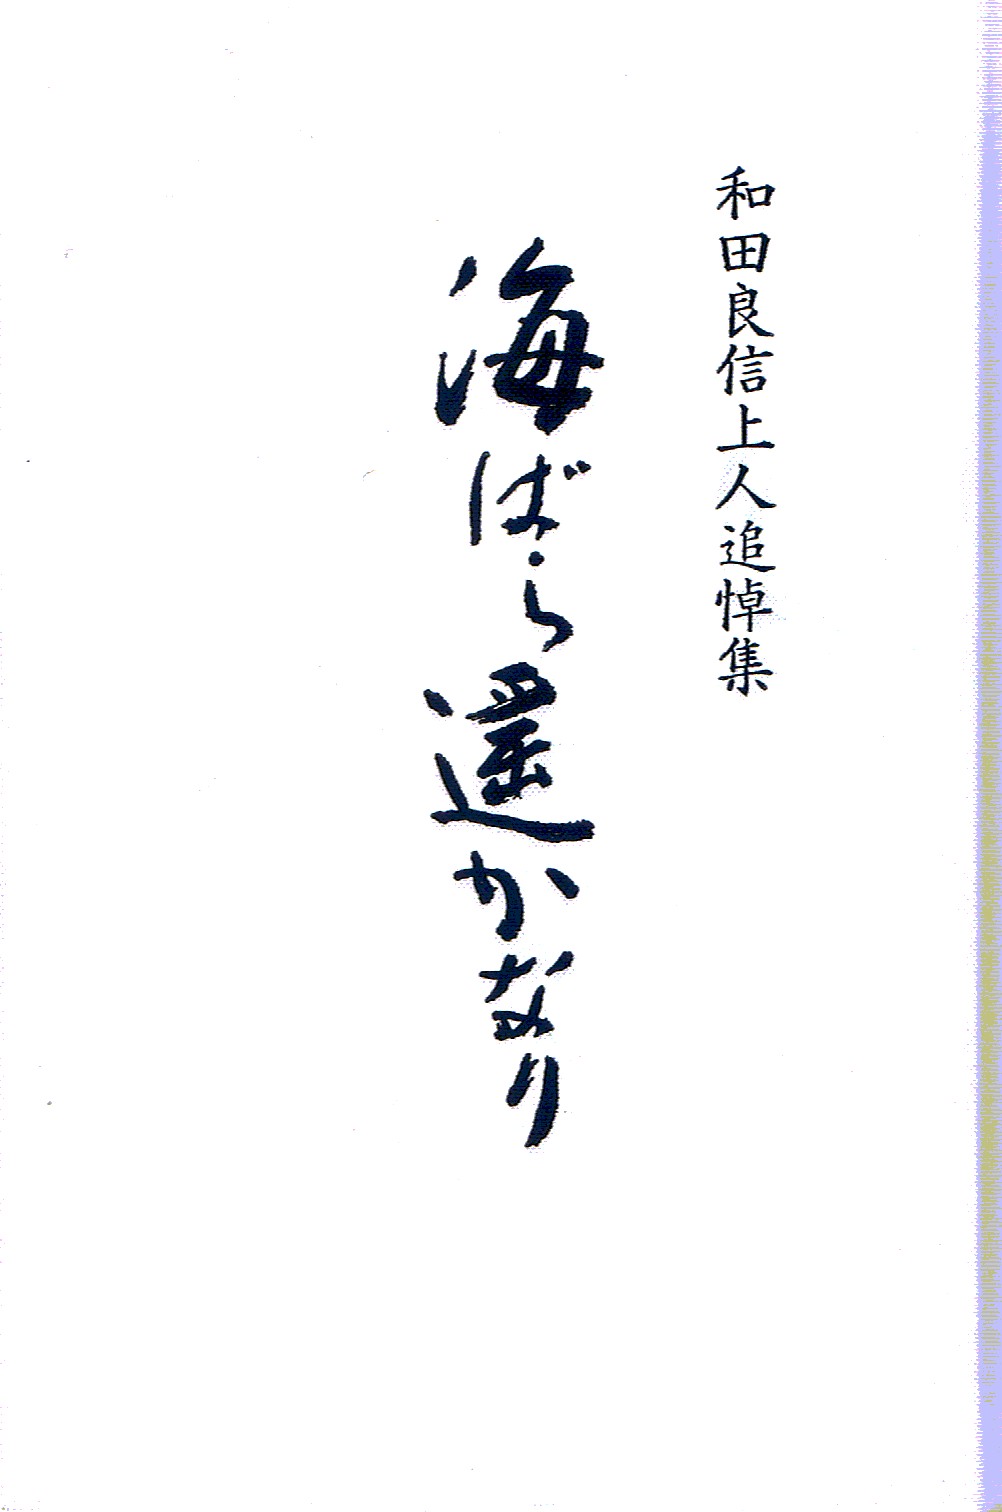 和田良信上人追悼集
海ばら遥かなり